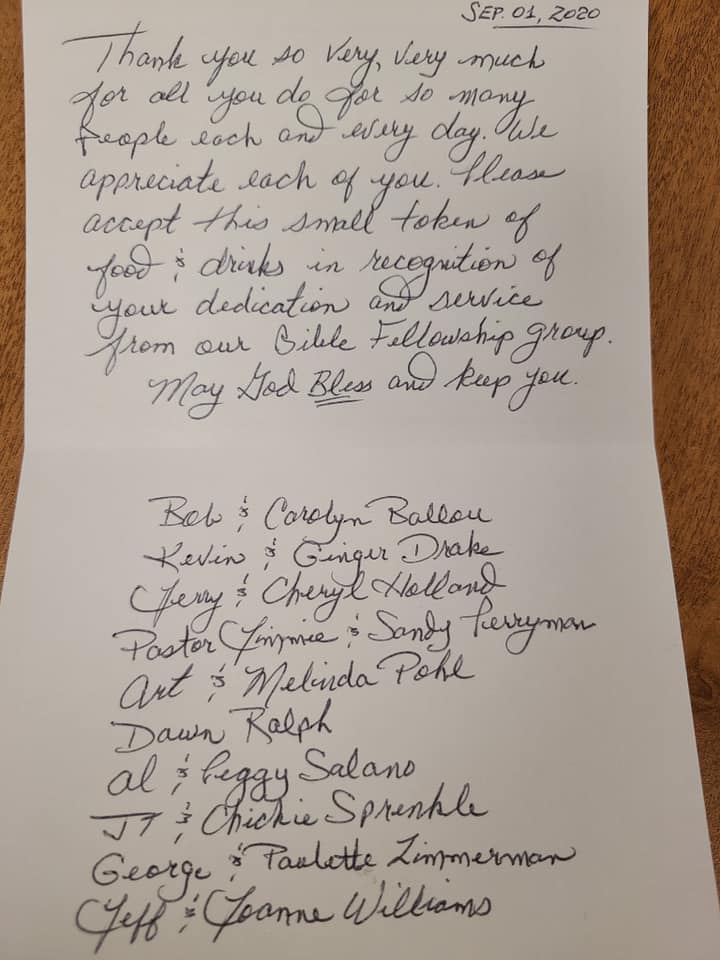 SEP. 01, 2020
Thank you so very, very much
for all you do for so many
people each and every day. We
appreciate each of you. Please
accept this small token of
food & drinks in recognition of
your dedication and service
from our Bible Fellowship group.
May God Bless and keep you.
Bob & Carolyn Ballou
Kevin & Ginger Drake
Jerry & Cheryl Holland
Pastor Jimmie & Sandy Perryman
Art & Melinda Pohl
Dawn Ralph
Al & Peggy Salano
JT & Chickie Sprenkle
George & Paulette Zimmerman
Jeff & Joanne Williams